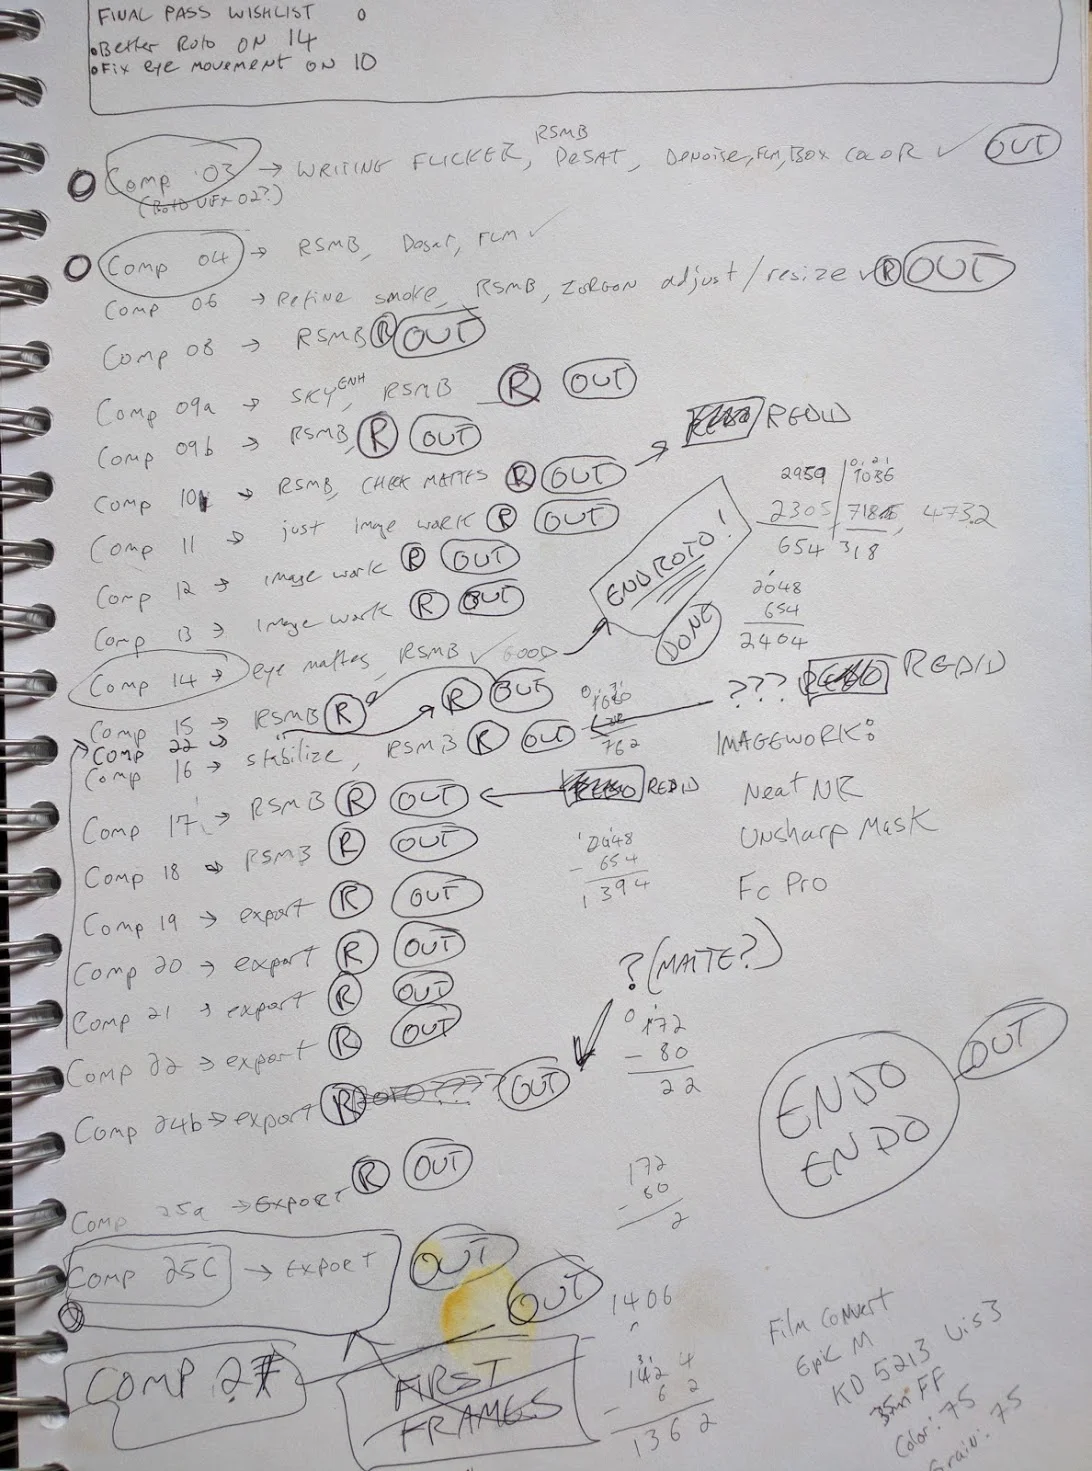 FINAL PASS WISHLIST
• Better Roto ON 14
• Fix eye movement ON 10
RSMB
Comp 03 → WRITING FLICKER, DeSAT, Denoise, FLM, BOX COLOR ✓ OUT
(Roto VFX 02?)
Comp 04 → RSMB, Desat, FLM ✓
Comp 06 → Refine smoke, RSMB, ZORGON adjust/resize ✓ R OUT
Comp 08 → RSMB R OUT
Comp 09a → SKY ENH, RSMB R OUT
Comp 09b → RSMB, R OUT
Comp 10 → RSMB, CHECK MATTES R OUT → REDID
Comp 11 → just image work R OUT
Comp 12 → image work R OUT
Comp 13 → image work R OUT
ENDROTO!
DONE
2959 1036
2305 718, 473.2
654 318
2048
654
2404
Comp 14 → eye mattes, RSMB ✓ GOOD
Comp 15 → RSMB R R OUT
Comp 22
Comp 16 → stabilize, RSMB R OUT ← ??? REDID
762
Comp 17 → RSMB R OUT ← REDID
Comp 18 → RSMB R OUT
2048
- 654
1394
IMAGEWORK:
Neat NR
Unsharp Mask
Fc Pro
Comp 19 → export R OUT
Comp 20 → export R OUT
Comp 21 → export R OUT
Comp 22 → export R OUT
? (MATTE?)
Comp 24b → export R OUT
172
- 80
22
ENDO
ENDO
OUT
Comp 25a → Export R OUT
172
- 60
2
Comp 25C → Export OUT
OUT
COMP 27
FIRST
FRAMES
1406
1424
- 62
1362
Film Convert
Epic M
KD 5213 Vis3
35mm FF
Color: 75
Grain: 75